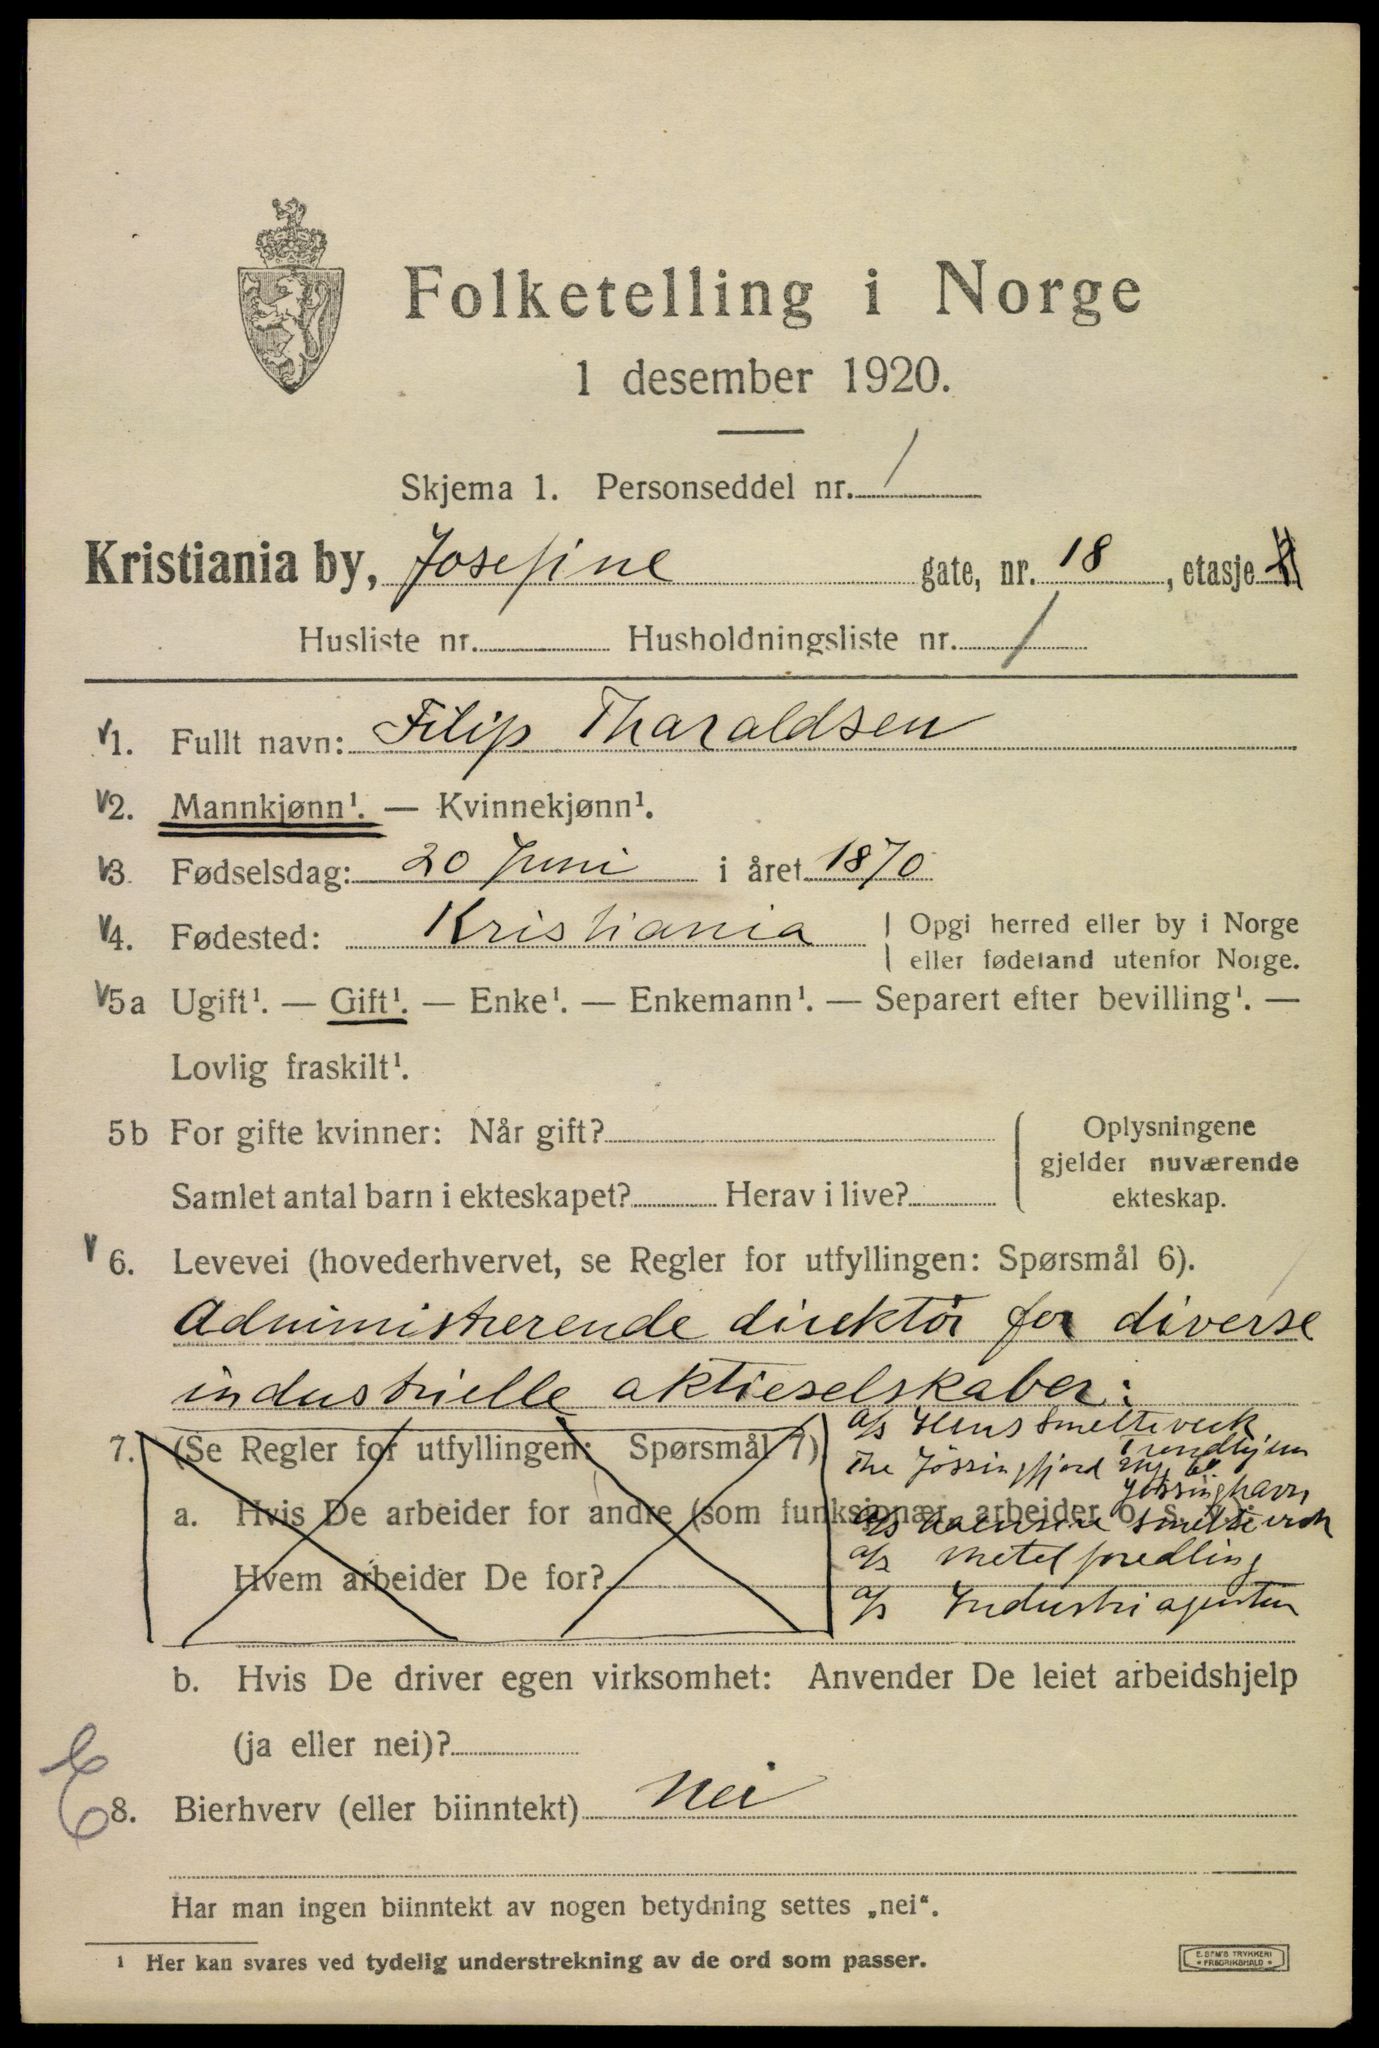 Folketelling i Norge
1 desember 1920.
Skjema 1. Personseddel nr. 1
Kristiania by, Josefine gate, nr. 18, etasje
Husliste nr. Husholdningsliste nr. 1
1. Fullt navn: Filip Tharaldsen
2. Mannkjønn¹. — Kvinnekjønn¹.
3. Fødselsdag: 20 Juni i året 1870
4. Fødested: Kristiania
Opgi herred eller by i Norge
eller fødeland utenfor Norge.
5a Ugift¹. — Gift¹. — Enke¹. — Enkemann¹. — Separert efter bevilling¹. —
Lovlig fraskilt¹.
5b For gifte kvinner: Når gift?
Samlet antal barn i ekteskapet? Herav i live?
Oplysningene
gjelder nuværende
ekteskap.
6. Levevei (hovederhvervet, se Regler for utfyllingen: Spørsmål 6).
Administrerende direktör for diverse
industrielle aktieselskaber:
a/s Ilens Smelteverk
Trondhjem
The Jössingfjord
Jössinghavn
7. (Se Regler for utfyllingen: Spørsmål 7)
a. Hvis De arbeider for andre (som funksjonær, arbeider o. s. v.):
a/s Smelteverk
Hvem arbeider De for?
a/s Metalforedling
a/s Industriagenten
b. Hvis De driver egen virksomhet: Anvender De leiet arbeidshjelp
(ja eller nei)?
8. Bierhverv (eller biinntekt) Nei
Har man ingen biinntekt av nogen betydning settes „nei“.
¹ Her kan svares ved tydelig understrekning av de ord som passer.
E. SEM'S TRYKKERI
FREDRIKSHALD